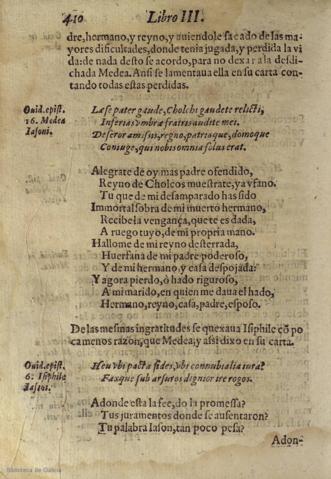 410 Libro III.
dre, hermano, y reyno, y auiendole sacado de las ma
yores dificultades, donde tenia jugada, y perdida la vi
da: de nada desto se acordo, para no dexar a la desdi-
chada Medea. Ansi se lamentaua ella en su carta con
tando todas estas perdidas.
Ouid. epist.
16. Medea
Iasoni.
Læse pater gaude, Cholchi gaudete relicti,
Inferias vmbræ fratris audite mei.
Deseror amissis, regno, patriaque, domoque
Coniuge, qui nobis omnia solus erat.
Alegrate de oy mas padre ofendido,
Reyno de Cholcos muestrate, ya vfano.
Tu que de mi desamparado has sido
Immortal sobra de mi muerto hermano,
Recibe la vengança, que te es dada,
A ruego tuyo, de mi propria mano.
Hallome de mi reyno desterrada,
Huerfana de mi padre poderoso,
Y de mi hermano, y casa despojada:
Y agora pierdo, ò hado riguroso,
A mi marido, en quien me daua el hado,
Hermano, reyno, casa, padre, esposo.
De las mesmas ingratitudes se quexaua Isiphile cõ po
ca menos razon, que Medea, y assi dixo en su carta.
Ouid. epist.
6. Isiphile
Iasoni.
Heu vbi pacta fides, vbi connubialia iura?
Faxque sub arsuros dignior ire rogos.
Adonde esta la fee, do la promessa?
Tus juramentos donde se ausentaron?
Tu palabra Iason, tan poco pesa?
Adon-
Biblioteca de Galicia